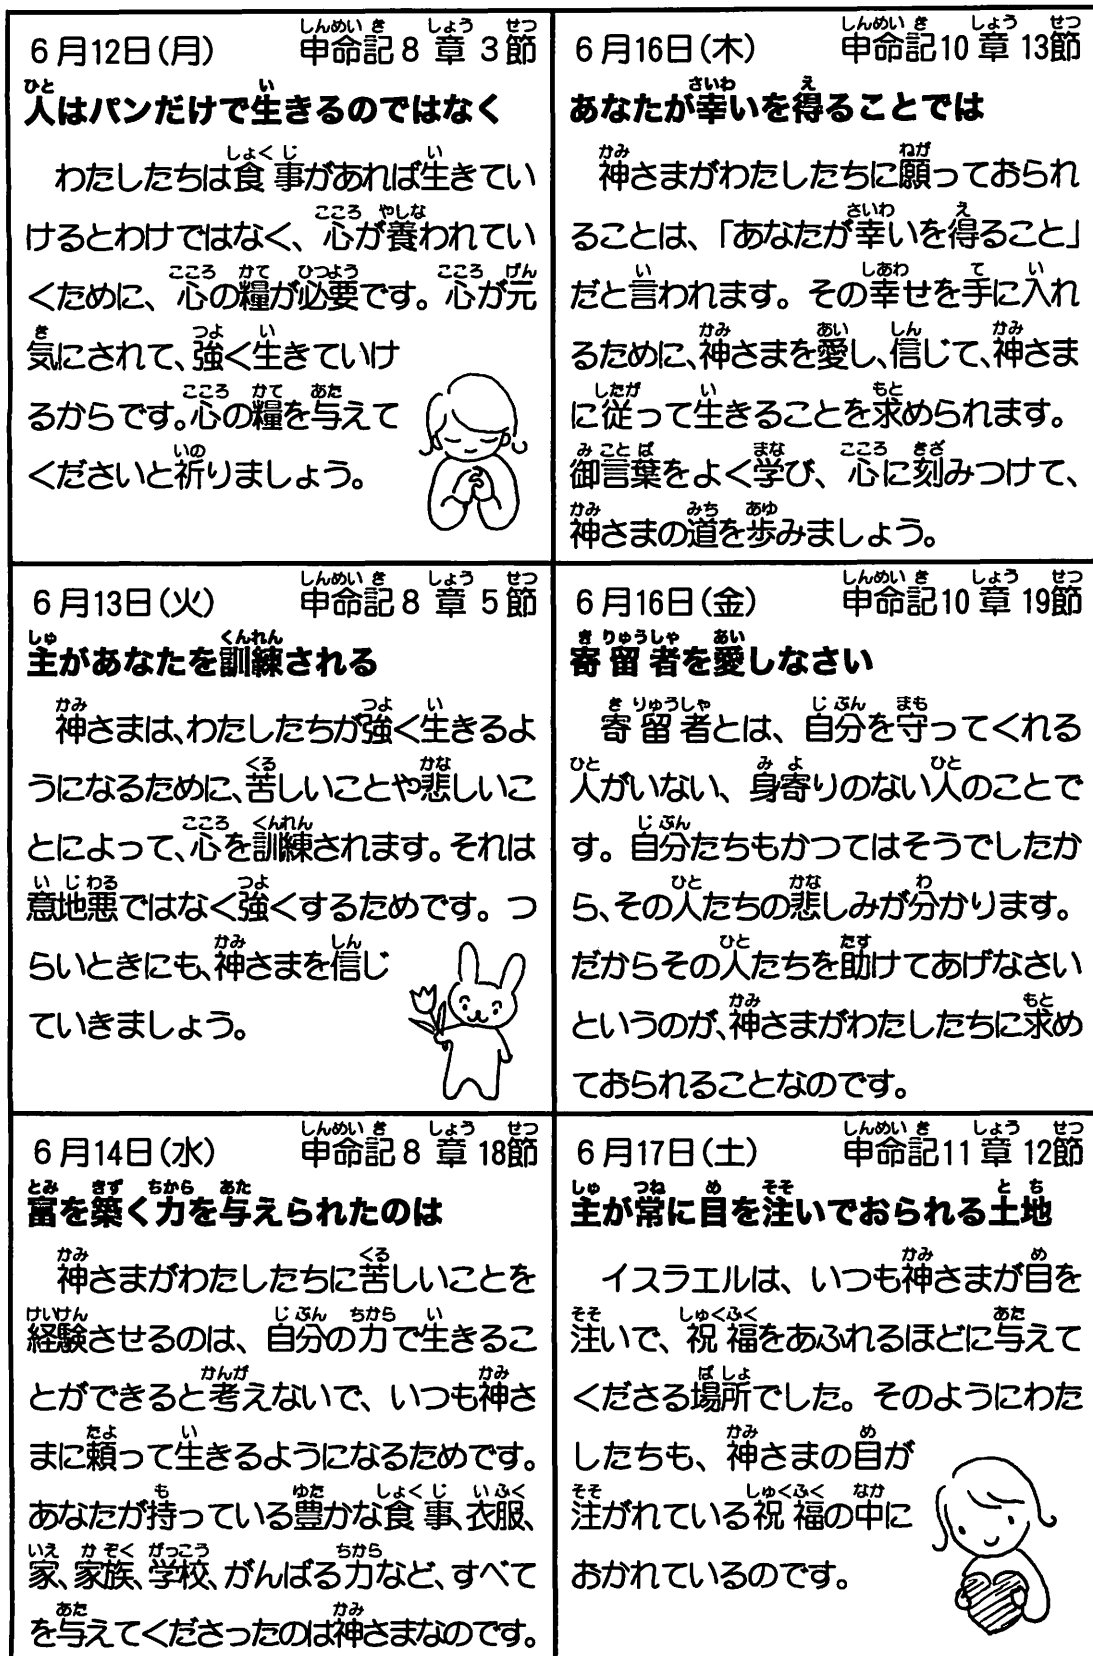 6月12日(月) 申命記8章3節
人はパンだけで生きるのではなく
わたしたちは食事があれば生きてい
けるとわけではなく、心が養われてい
くために、心の糧が必要です。心が元
気にされて、強く生きていけ
るからです。心の糧を与えて
くださいと祈りましょう。
6月13日(火) 申命記8章5節
主があなたを訓練される
神さまは、わたしたちが強く生きるよ
うになるために、苦しいことや悲しいこ
とによって、心を訓練されます。それは
意地悪ではなく強くするためです。つ
らいときにも、神さまを信じ
ていきましょう。
6月14日(水) 申命記8章18節
富を築く力を与えられたのは
神さまがわたしたちに苦しいことを
経験させるのは、自分の力で生きるこ
とができると考えないで、いつも神さ
まに頼って生きるようになるためです。
あなたが持っている豊かな食事、衣服、
家、家族、学校、がんばる力など、すべて
を与えてくださったのは神さまなのです。
6月16日(木) 申命記10章13節
あなたが幸いを得ることでは
神さまがわたしたちに願っておられ
ることは、「あなたが幸いを得ること」
だと言われます。その幸せを手に入れ
るために、神さまを愛し、信じて、神さま
に従って生きることを求められます。
御言葉をよく学び、心に刻みつけて、
神さまの道を歩みましょう。
6月16日(金) 申命記10章19節
寄留者を愛しなさい
寄留者とは、自分を守ってくれる
人がいない、身寄りのない人のことで
す。自分たちもかつてはそうでしたか
ら、その人たちの悲しみが分かります。
だからその人たちを助けてあげなさい
というのが、神さまがわたしたちに求め
ておられることなのです。
6月17日(土) 申命記11章12節
主が常に目を注いでおられる土地
イスラエルは、いつも神さまが目を
注いで、祝福をあふれるほどに与えて
くださる場所でした。そのようにわた
したちも、神さまの目が
注がれている祝福の中に
おかれているのです。